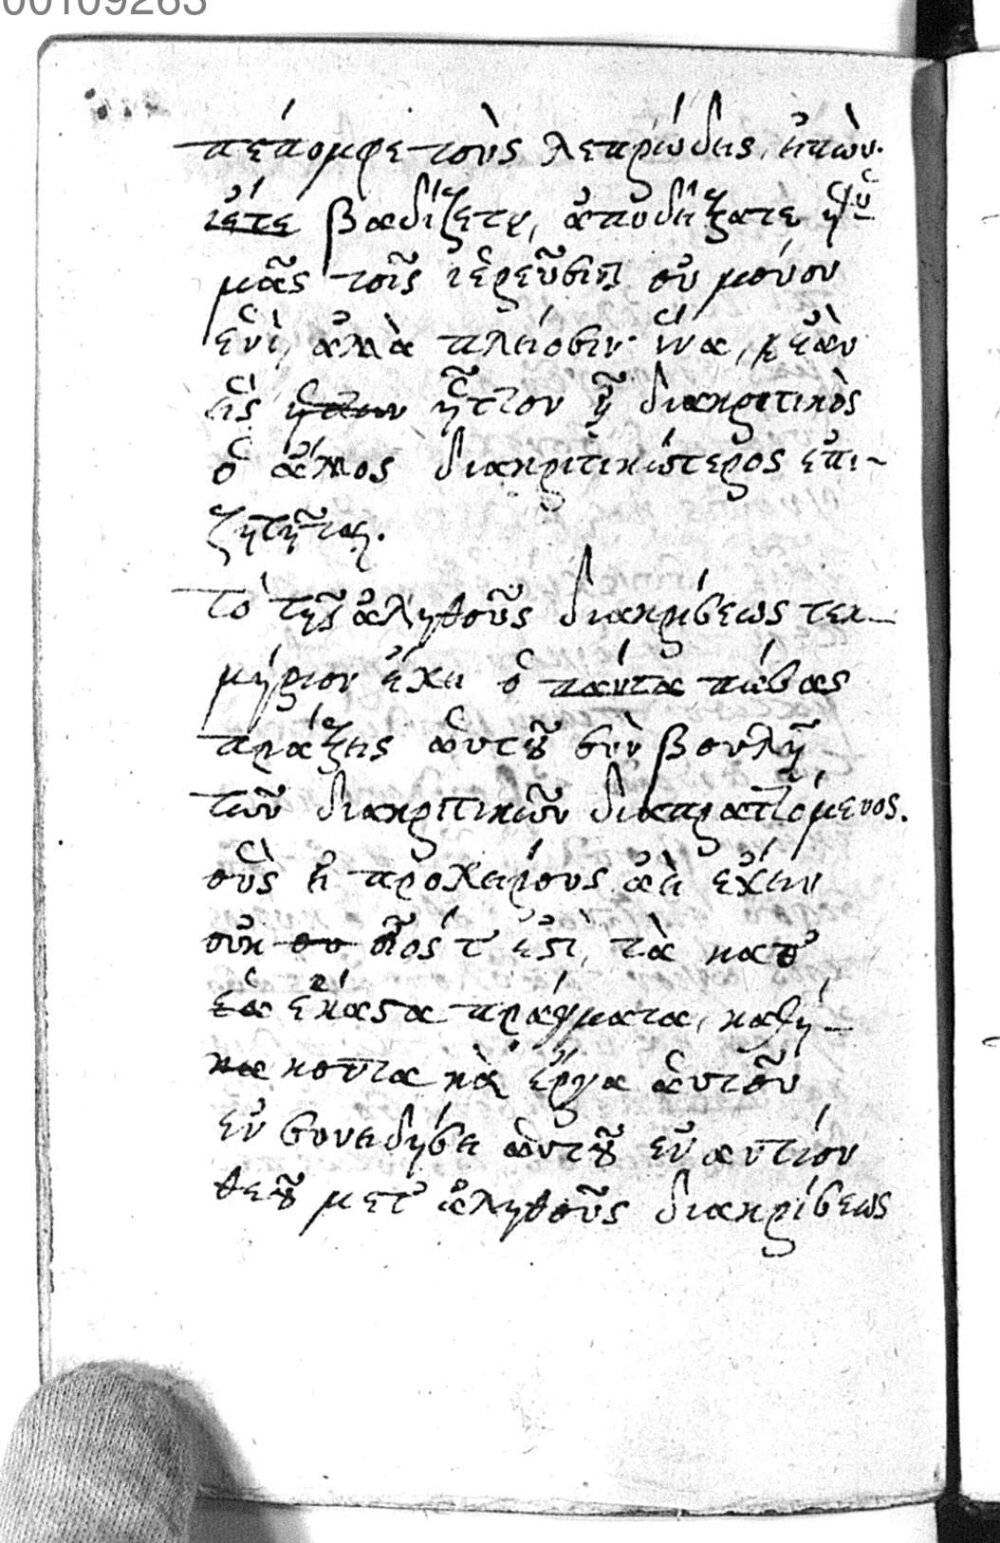 00109263
πέπομφε τοὺς λεπρώδεις, εἰπὼν.
ἴετε βαδίζετε, ἀποδείξατε ὑ
μᾶς τοῖς ἱερεῦσιν οὐ μόνον
ἑνὶ, ἀλλὰ πλείοσιν· ἵνα, ἐὰν
εἷς ἧττον ᾖ διακριτικὸς
ὁ ἄλλος διακριτικώτερος ἐπι-
ζητῆται.
τὸ τῆς ἀληθοῦς διακρίσεως τεκ-
μήριον ἔχει ὁ πάσας
πράξεις αὑτοῦ σὺν βουλῇ
τῶν διακριτικῶν διαπραττόμενος.
οὓς εἰ προχείρους ἀεὶ ἔχειν
οὐκ οἷός τ' ἐστὶ, τὰ κατ'
ἕκαστα πράγματα, καθή-
κοντα καὶ ἔργα αὑτοῦ
ἐν συνειδήσει αὑτοῦ ἐναντίον
θεοῦ μετ' ἀληθοῦς διακρίσεως